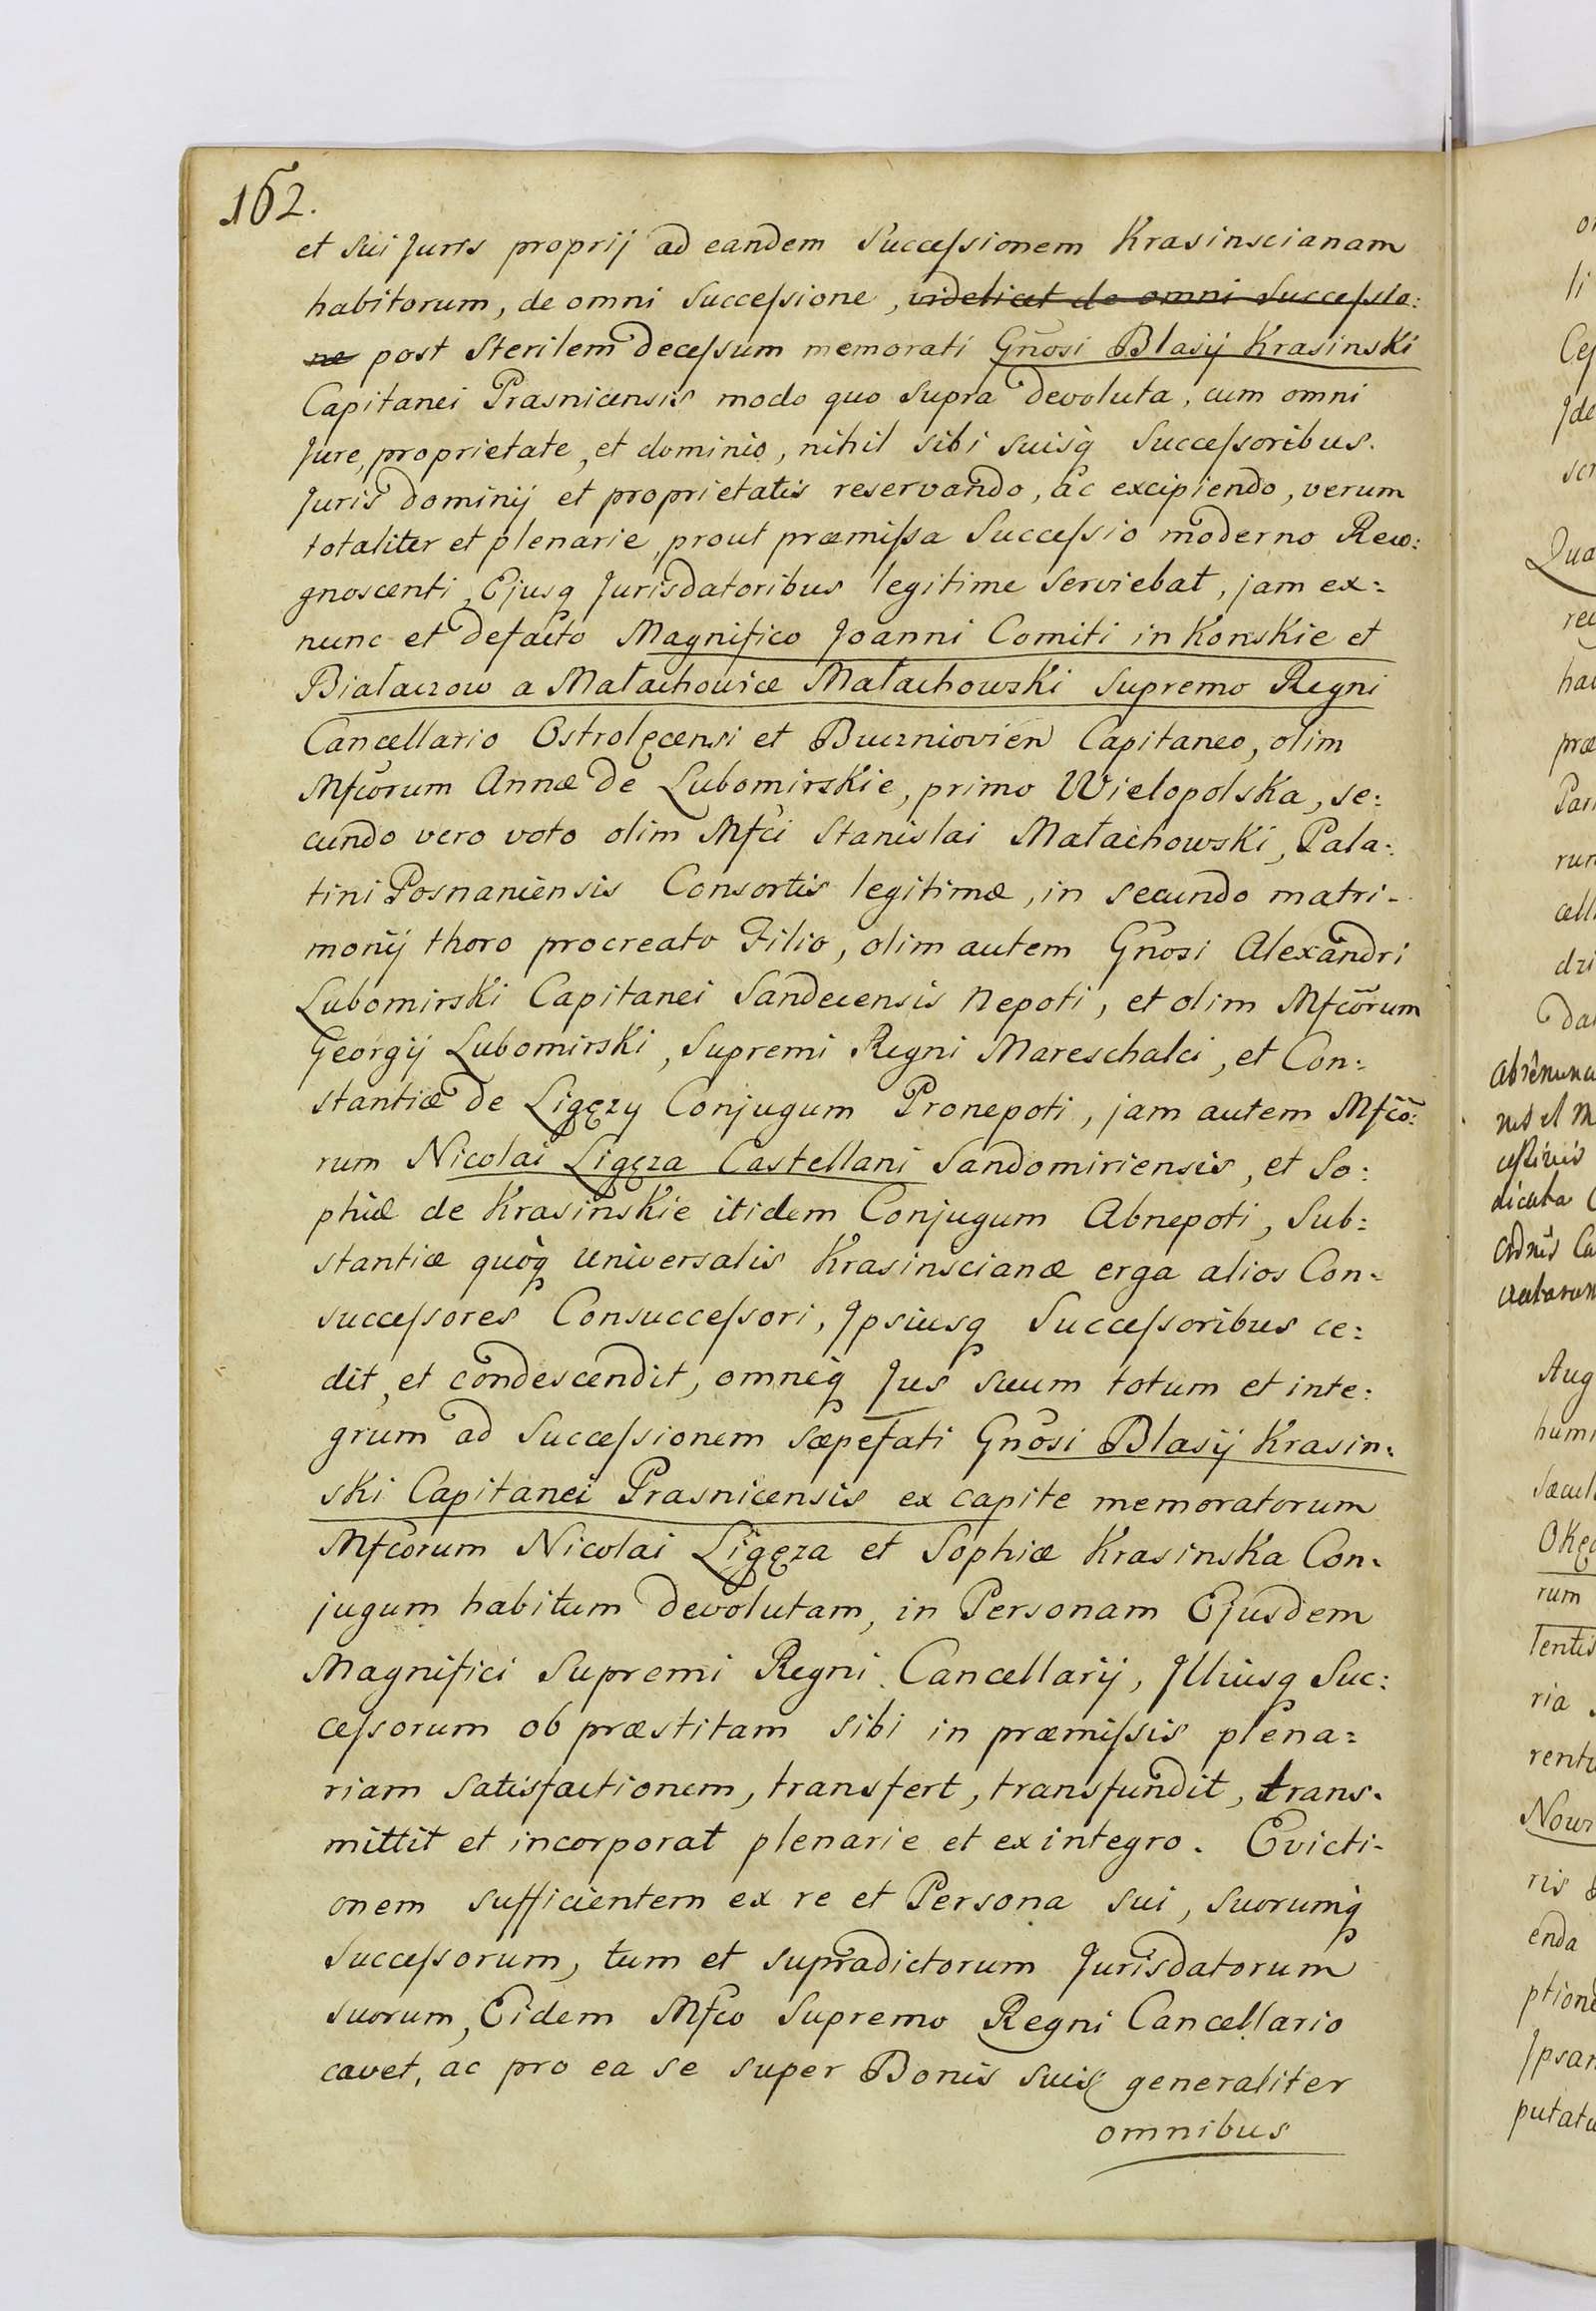 162.
et sui Juris proprij ad eandem Succeſsionem Krasinscianam
habitorum, de omni Succeſsione, videlicet de omni Succeſsio:
ne post Sterilem deceſsum memorati Gnõsi Blasij Krasinski
Capitanei Prasnicensis modo quo supra devoluta, cum omni
Jure, proprietate, et dominio, nihil sibi suisq Succeſsoribus.
Juris dominij et proprietatis reservando, ac excipiendo, verum
totaliter et plenarie, prout præmiſsa Succeſsio moderno Reco:
gnoscenti, Ejusq Jurisdatoribus legitime serviebat, jam ex:
nunc et defacto Magnifico Joanni Comiti in Konskie et
Białaczow a Małachowice Małachowski Supremo Regni
Cancellario Ostrolęcensi et Buczniovien Capitaneo, olim
Mfcorum Annæ de Lubomirskie, primo Wielopolska, se:
cundo vero voto olim Mfci Stanislai Małachowski, Pala:
tini Posnaniensis Consortis legitimæ, in secundo matri-
monij thoro procreato Filio, olim autem Gnõsi Alexandri
Lubomirski Capitanei Sandecensis Nepoti, et olim Mfcõrum
Georgij Lubomirski, Supremi Regni Mareschalci, et Con:
stantiæ de Ligęzy Conjugum Pronepoti, jam autem Mfcõ:
rum Nicolai Ligęza Castellani Sandomiriensis, et So:
phiæ de Krasinskie itidem Conjugum Abnepoti, Sub:
stantiæ quoq universalis Krasinscianæ erga alios Con:
succeſsores Consucceſsori, Jpsiusq Succeſsoribus ce:
dit, et condescendit, omneq Jus suum totum et inte:
grum ad Succeſsionem sæpefati Gnõsi Blasij Krasin:
ski Capitanei Prasnicensis ex capite memoratorum
Mfcorum Nicolai Ligęza et Sophiæ Krasinska Con:
jugum habitum devolutam, in Personam Ejusdem
Magnifici Supremi Regni Cancellarij, Jlliusq Suc:
ceſsorum ob præstitam sibi in præmiſsis plena:
riam satisfactionem, transfert, transfundit, trans:
mittit et incorporat plenarie et ex integro. Evicti-
onem sufficientem ex re et Persona sui, suorumq
Succeſsorum, tum et supradictorum Jurisdatorum
suorum, Eidem Mfco Supremo Regni Cancellario
cavet, ac pro ea se super Bonis suis generaliter
omnibus